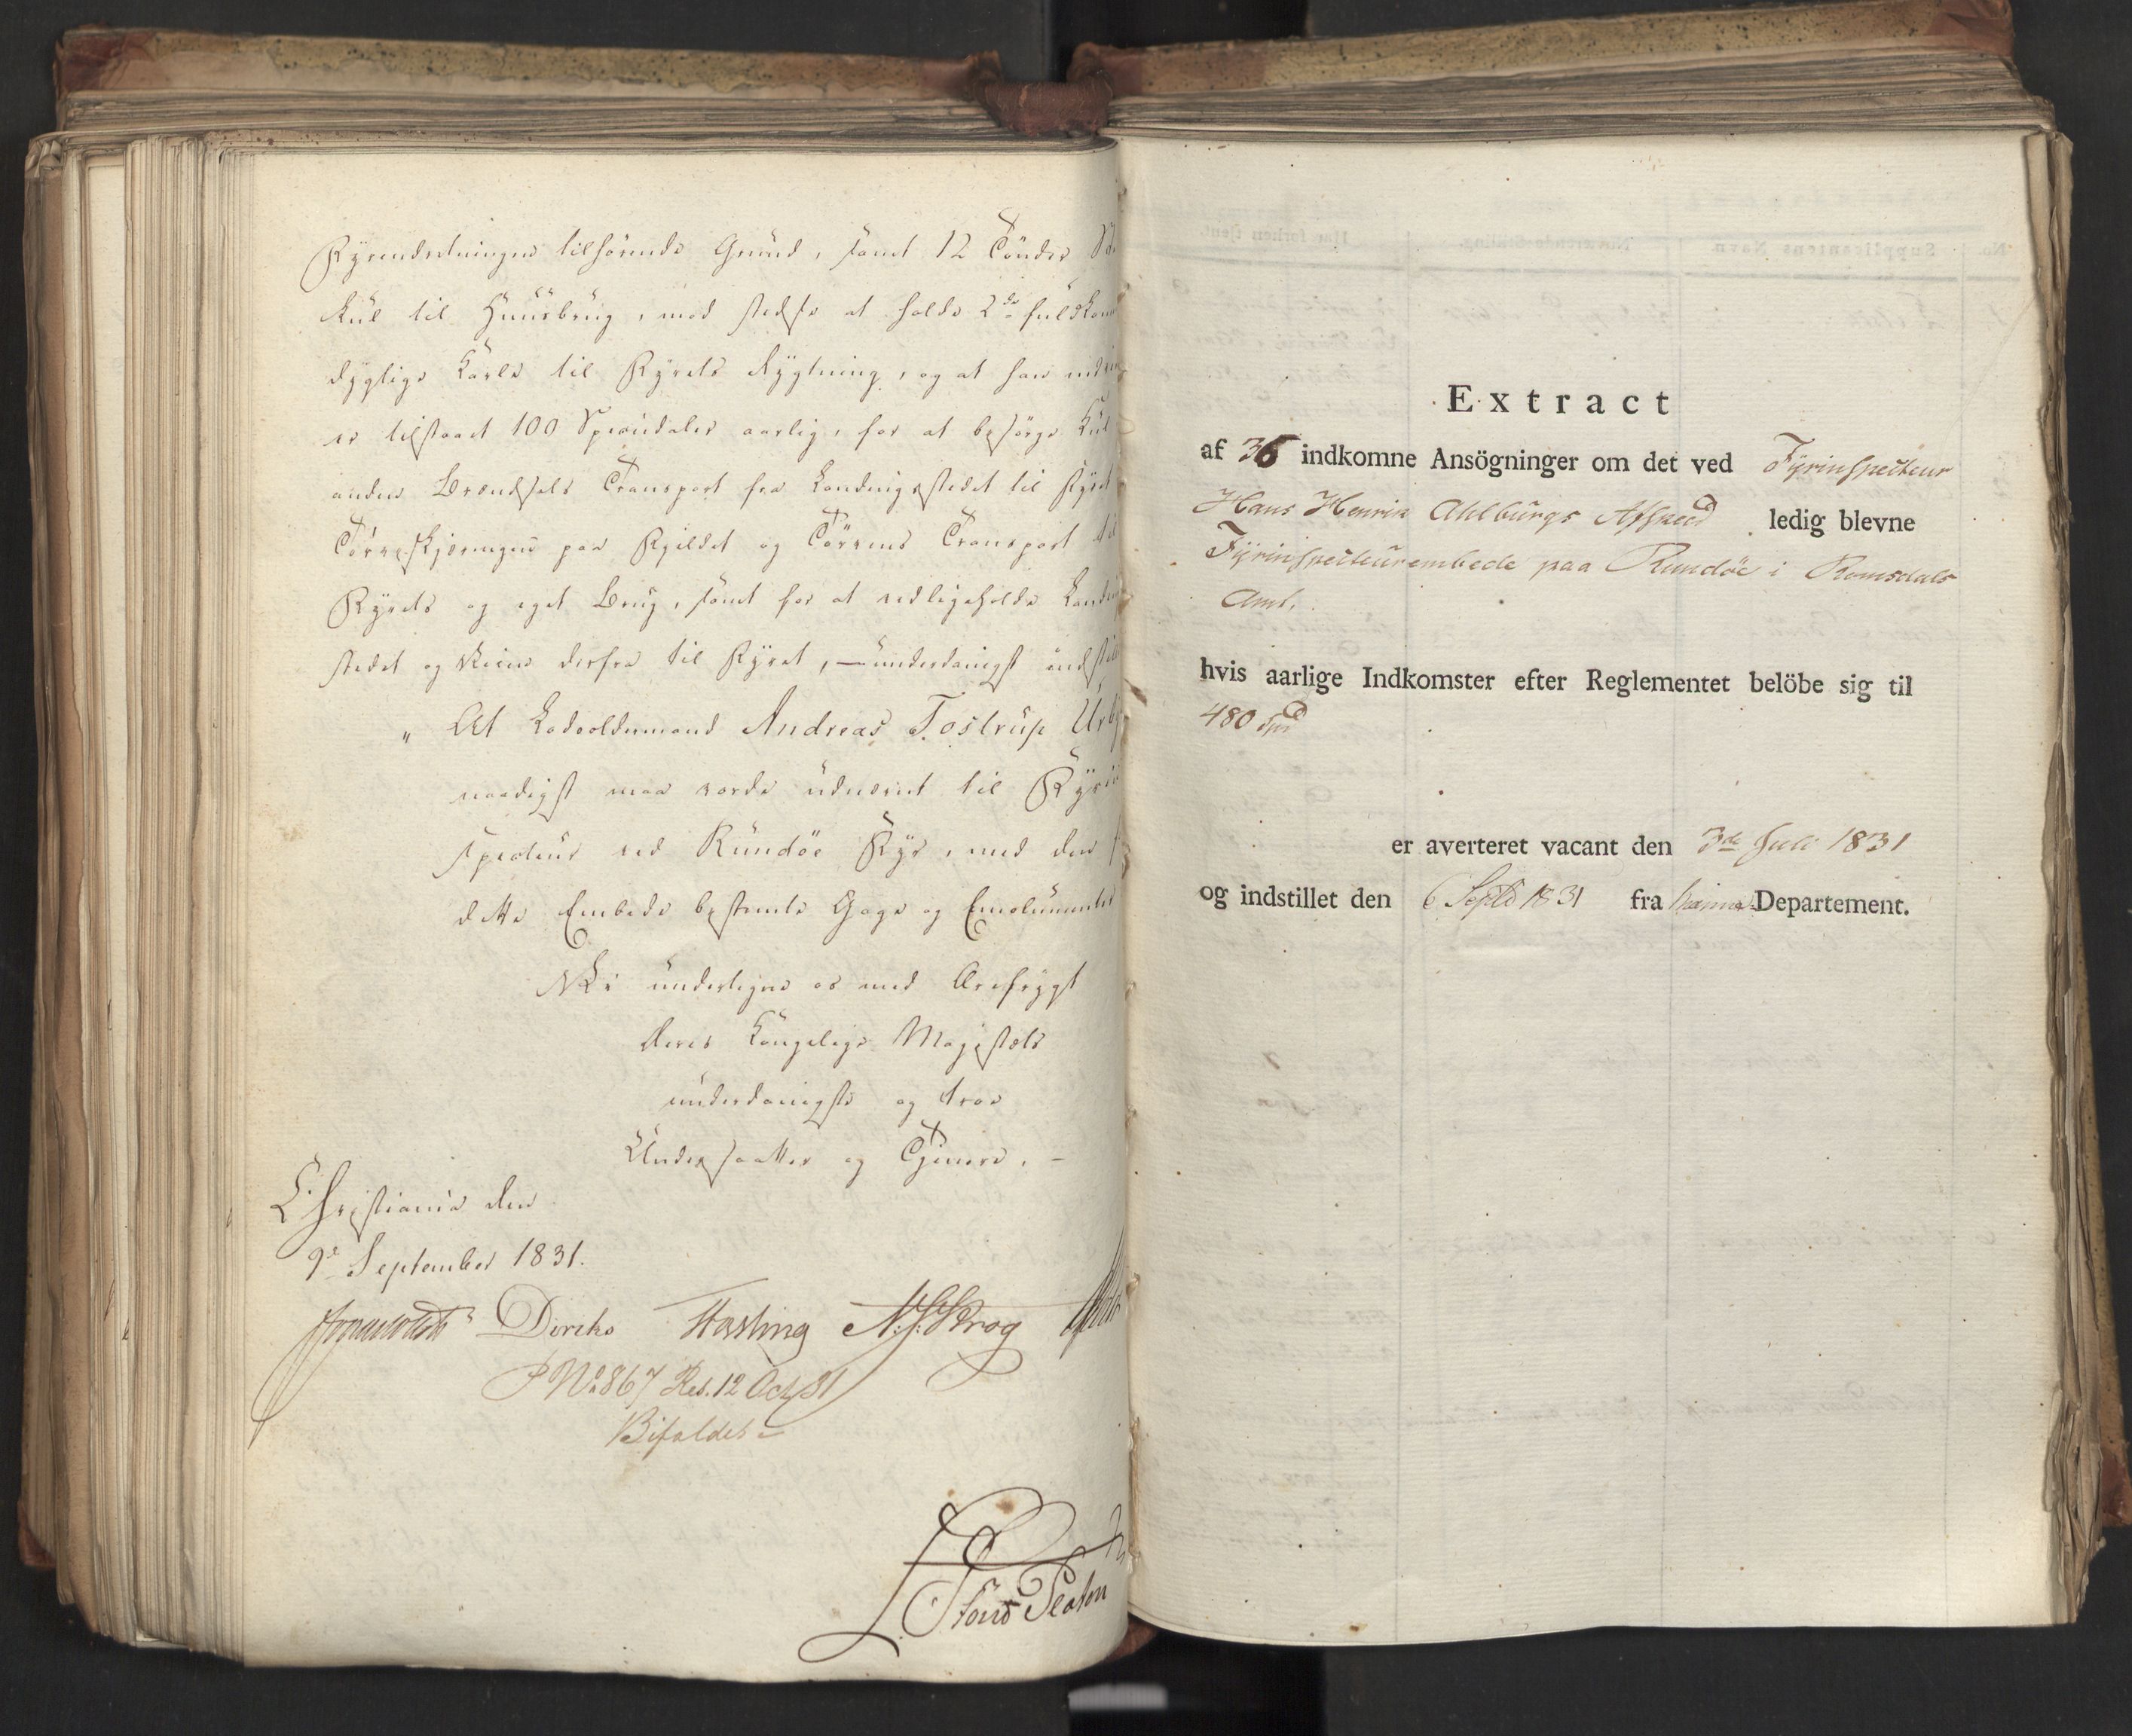 Fyrindretningen tilhörende Grund, samt 12 Tönder
Kul til Huusbrug, mod stedse at holde 2de
dygtige Karle til Fyrets Rygtning, og at han
er tilstaaet 100 Speciedaler aarlig, for at besörge
anden Brændsels Transport fra Landingsstedet til Fyret
Törveskjæringen paa Fjeldet og Törvens Transport til
Fyrets og eget Brug, samt for at vedligeholde
stedet og Veien derfra til Fyret, – underdanigst
" At Lodsoldermand Andreas Tostrup
naadigst maa vorde udnævnt til
specteur ved Rundöe Fyr, med den
dette Embede bestemte Gage og Emolumenter
Vi undertegne os med Ærefrygt
Deres Kongelige Majestæts
underdanigste og troe
Undersaatter og Tjenere. –
Christiania den
9de September 1831.
Diriks Fasting N. J. Krog
P No 867 Res. 12 Oct 31
Bifaldes
Extract
af 36 indkomne Ansögninger om det ved Fyrinspecteur
Hans Henrik Ahlburgs Afskeed ledig blevne
Fyrinspecteurembede paa Rundöe i Romsdals
Amt,
hvis aarlige Indkomster efter Reglementet belöbe sig til
480 Spd
er averteret vacant den 3de Juli 1831
og indstillet den 6 Septb 1831 fra Marine Departement.